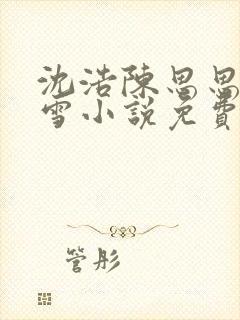 沈浩陳思思
雪小說免費
管彤